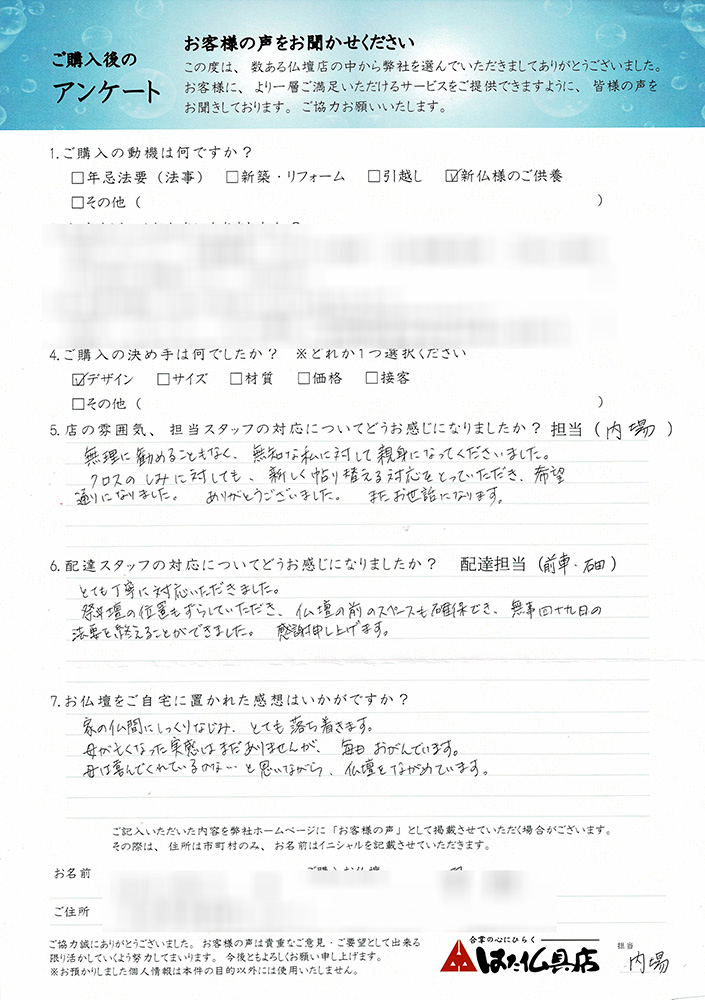 ご購入後の
アンケート
お客様の声をお聞かせください
この度は、数ある仏壇店の中から弊社を選んでいただきましてありがとうございました。
お客様に、より一層ご満足いただけるサービスをご提供できますように、皆様の声を
お聞きしております。ご協力お願いいたします。
1.ご購入の動機は何ですか？
□年忌法要（法事） □新築・リフォーム □引越し ☑新仏様のご供養
□その他（ ）
4.ご購入の決め手は何でしたか？ ※どれか1つ選択ください
☑デザイン □サイズ □材質 □価格 □接客
□その他（ ）
5.店の雰囲気、担当スタッフの対応についてどうお感じになりましたか？ 担当（内場）
無理に勧めることもなく、無知な私に対して親身になってくださいました。
クロスのしみに対しても、新しく帖り替える対応をとっていただき、希望
通りになりました。 ありがとうございました。 またお世話になります。
6.配達スタッフの対応についてどうお感じになりましたか？ 配達担当（前車・石田）
とても丁寧に対応いただきました。
祭壇の位置もずらしていただき、仏壇の前のスペースも確保でき、無事四十九日の
法要を終えることができました。 感謝申し上げます。
7.お仏壇をご自宅に置かれた感想はいかがですか？
家の仏間にしっくりなじみ、とても落ち着きます。
母が亡くなった実感はまだありませんが、毎日おがんでいます。
母は喜んでくれているのかな…と思いながら、仏壇をながめています。
ご記入いただいた内容を弊社ホームページに「お客様の声」として掲載させていただく場合がございます。
その際は、住所は市町村のみ、お名前はイニシャルを記載させていただきます。
お名前
ご住所
ご協力誠にありがとうございました。お客様の声は貴重なご意見・ご要望として出来る
限り活かしていくよう努力してまいります。今後ともよろしくお願い申し上げます。
※お預かりしました個人情報は本件の目的以外には使用いたしません。
合掌の心にひらく
はた仏具店
担当
内場